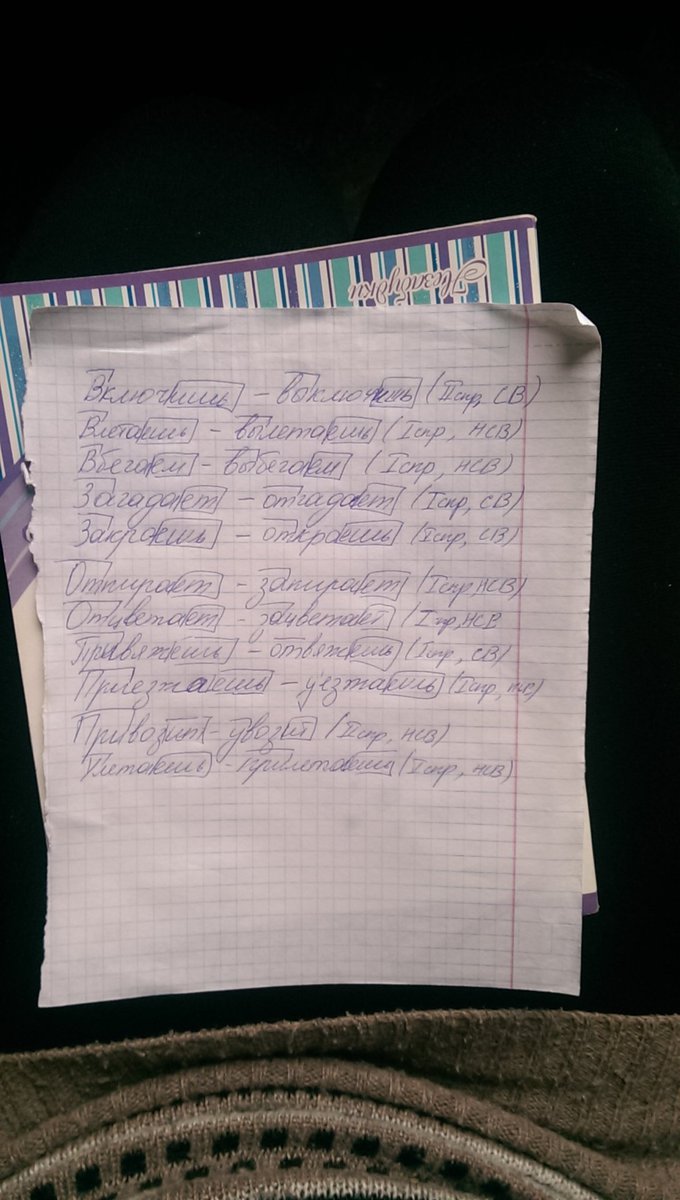 Незабудки
Включишь – выключишь (II спр, СВ)
Влетаешь – вылетаешь (I спр, НСВ)
Вбегаем – выбегаем (I спр, НСВ)
Загадает – отгадает (I спр, СВ)
Закроешь – откроешь (I спр, СВ)
Отпирает – запирает (I спр, НСВ)
Отцветает – зацветает (I спр, НСВ
Привяжешь – отвяжешь (I спр, СВ)
Приезжаешь – уезжаешь (I спр, НС)
Привозит – увозит (II спр, НСВ)
Улетаешь – прилетаешь (I спр, НСВ)